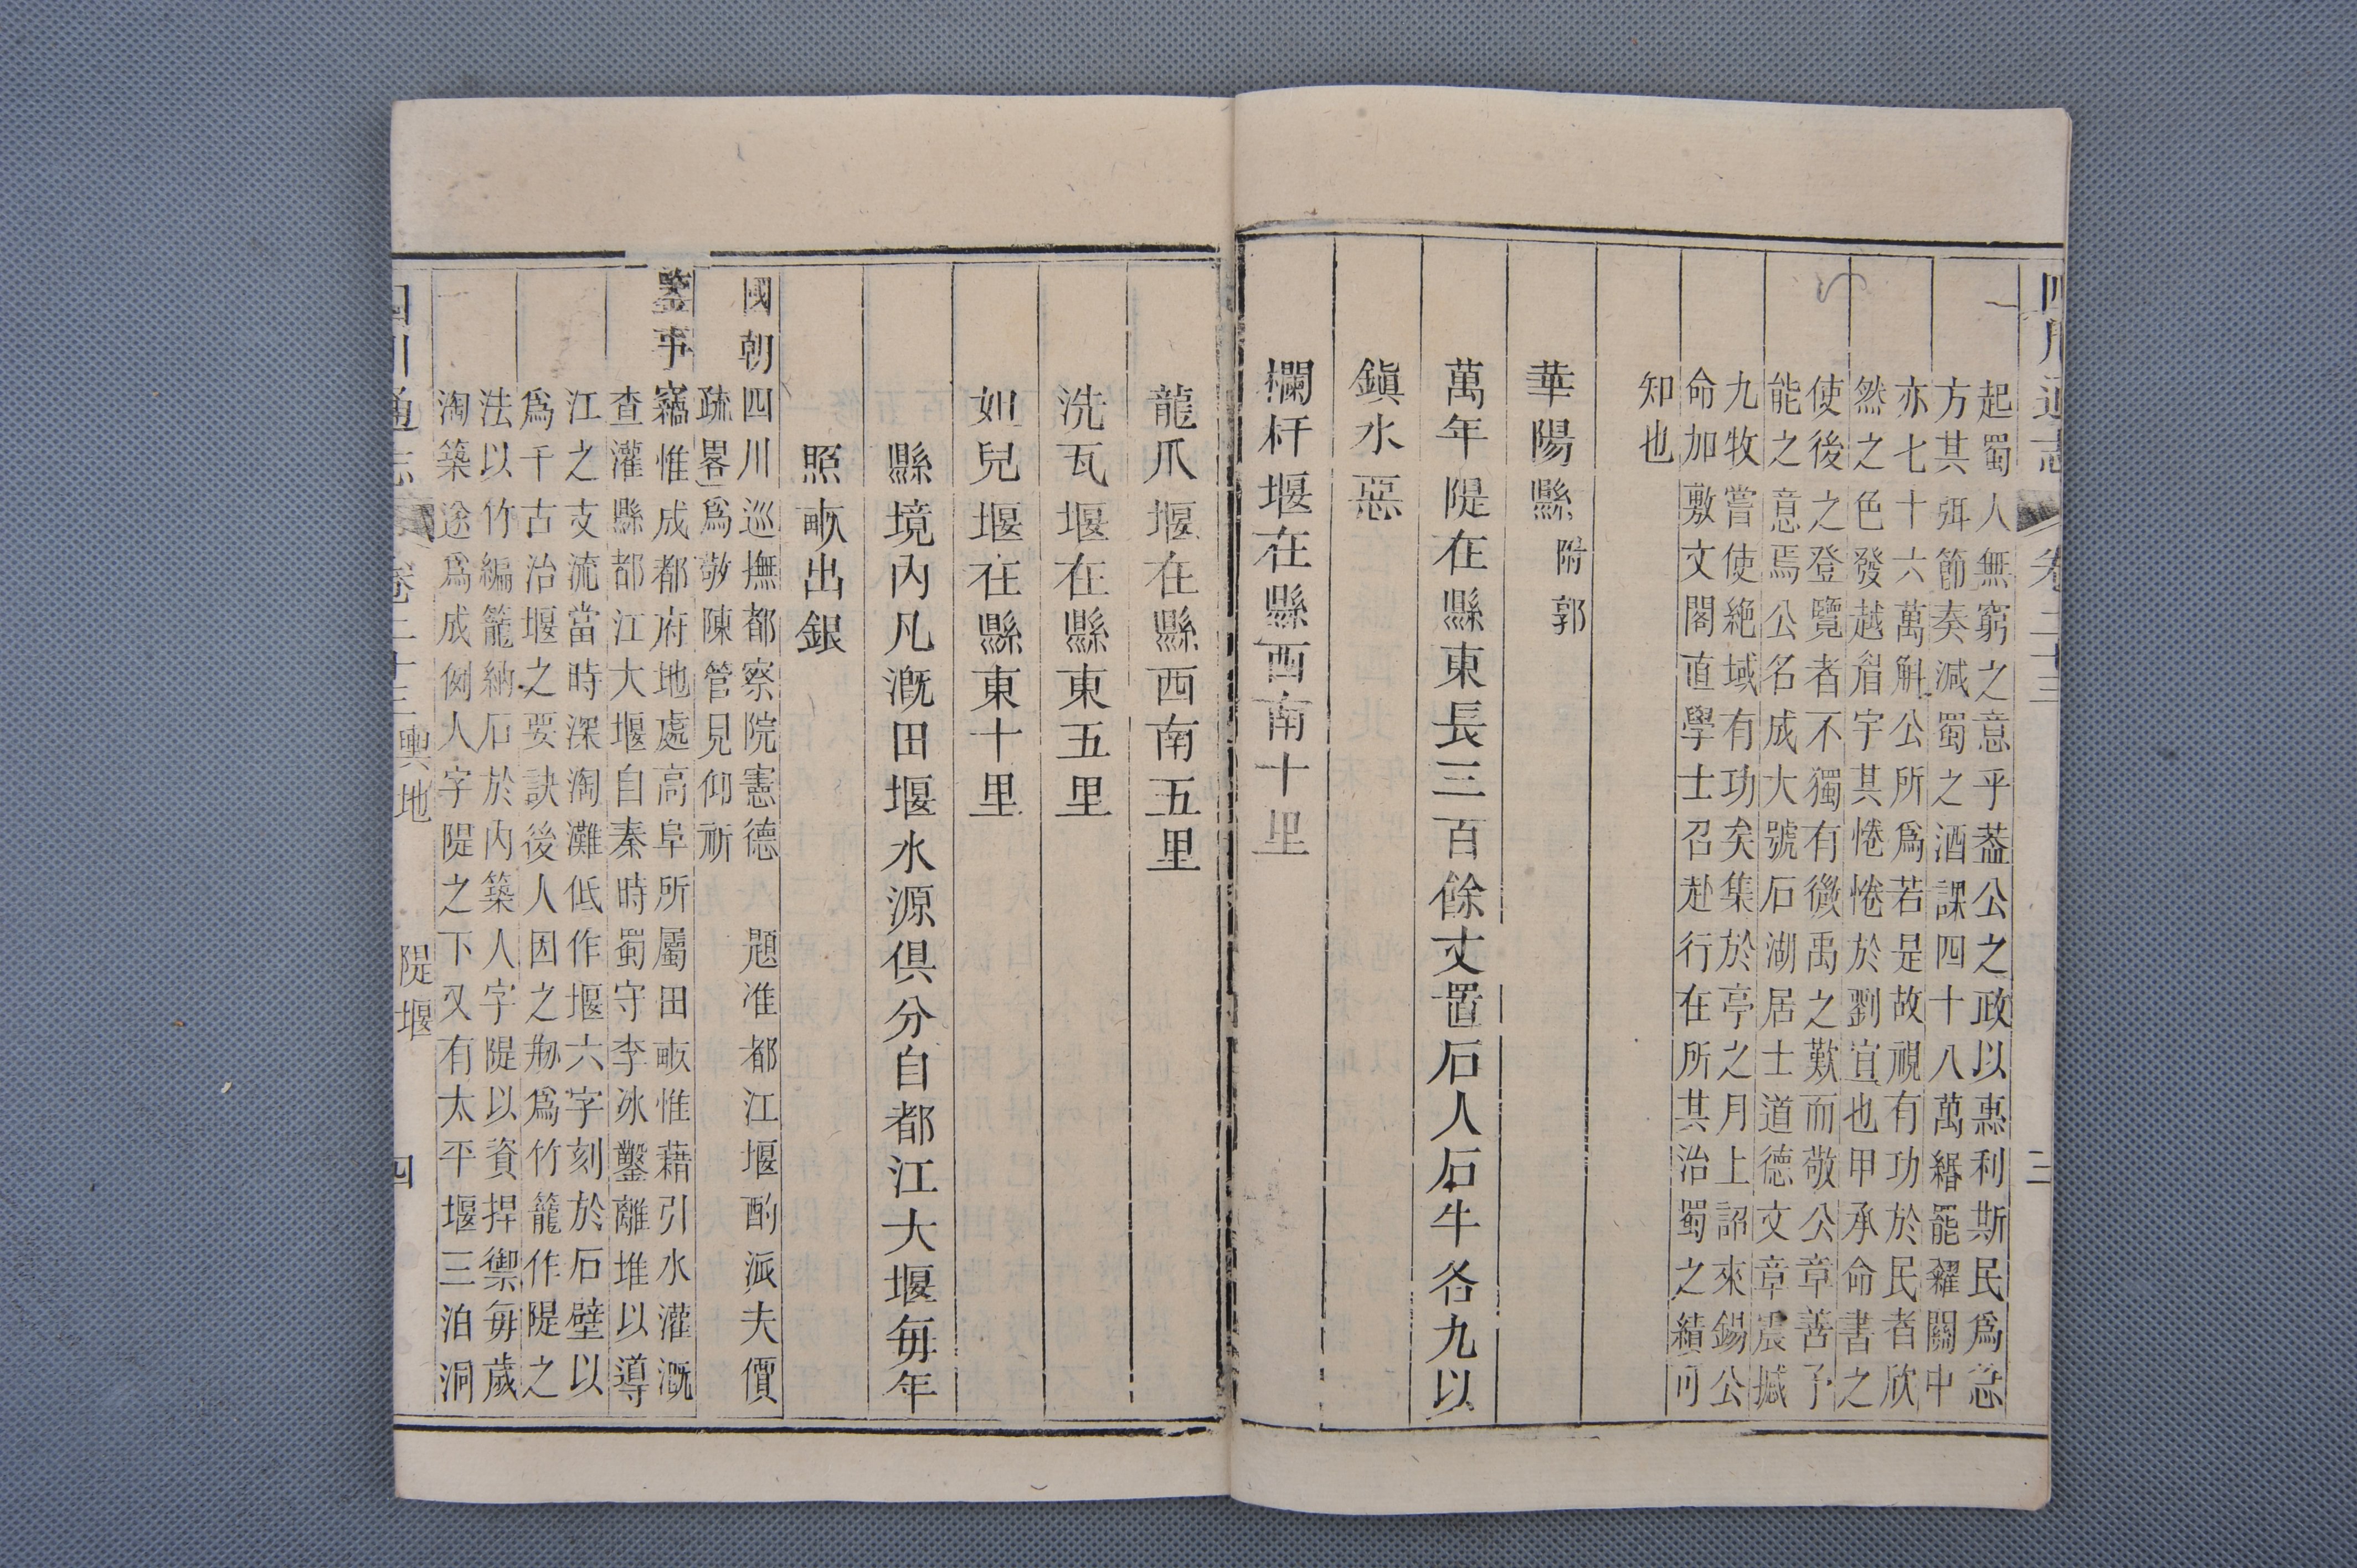 四川通志 卷二十三 三
起蜀人無窮之意乎葢公之政以惠利斯民爲急
方其弭節奏減蜀之酒課四十八萬緡罷糴關中
亦七十六萬斛公所爲若是故視有功於民者欣
然之色發越眉宇其惓惓於劉宜也甲承命書之
使後之登覽者不獨有微禹之歎而敬公章善予
能之意焉公名成大號石湖居士道德文章震撼
九牧嘗使絶域有功矣集於亭之月上詔來錫公
命加敷文閣直學士召赴行在所其治蜀之績可
知也
華陽縣附郭
萬年隄在縣東長三百餘丈置石人石牛各九以
鎭水惡
欄杆堰在縣西南十里
龍爪堰在縣西南五里
洗瓦堰在縣東五里
如兒堰在縣東十里
縣境內凡漑田堰水源俱分自都江大堰每年
照畝出銀
國朝四川巡撫都察院憲德 題准都江堰酌派夫價
疏畧爲敬陳管見仰祈
鑒事竊惟成都府地處高阜所屬田畝惟藉引水灌漑
查灌縣都江大堰自秦時蜀守李冰鑿離堆以導
江之支流當時深淘灘低作堰六字刻於石壁以
爲千古治堰之要訣後人因之剏爲竹籠作隄之
法以竹編籠納石於內築人字隄以資捍禦每歲
淘築途爲成例人字隄之下又有太平堰三泊洞
四川通志 卷二十三 輿地 隄堰 四